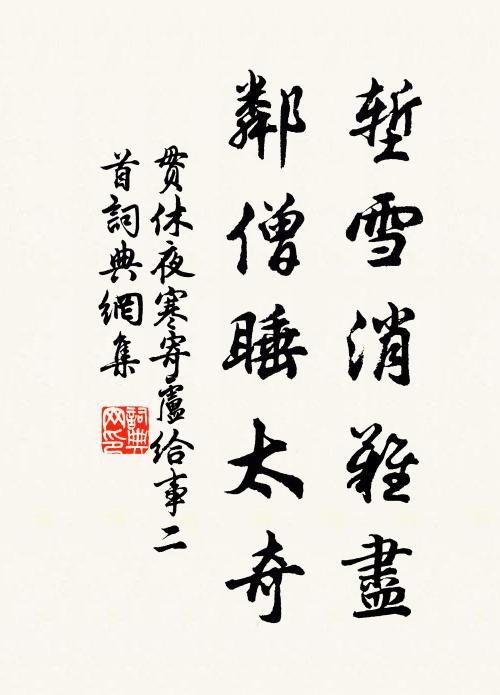 塹雪消難盡
鄰僧睡太奇
貫休夜寒寄盧給事二
首詞典網集
詞典
网印